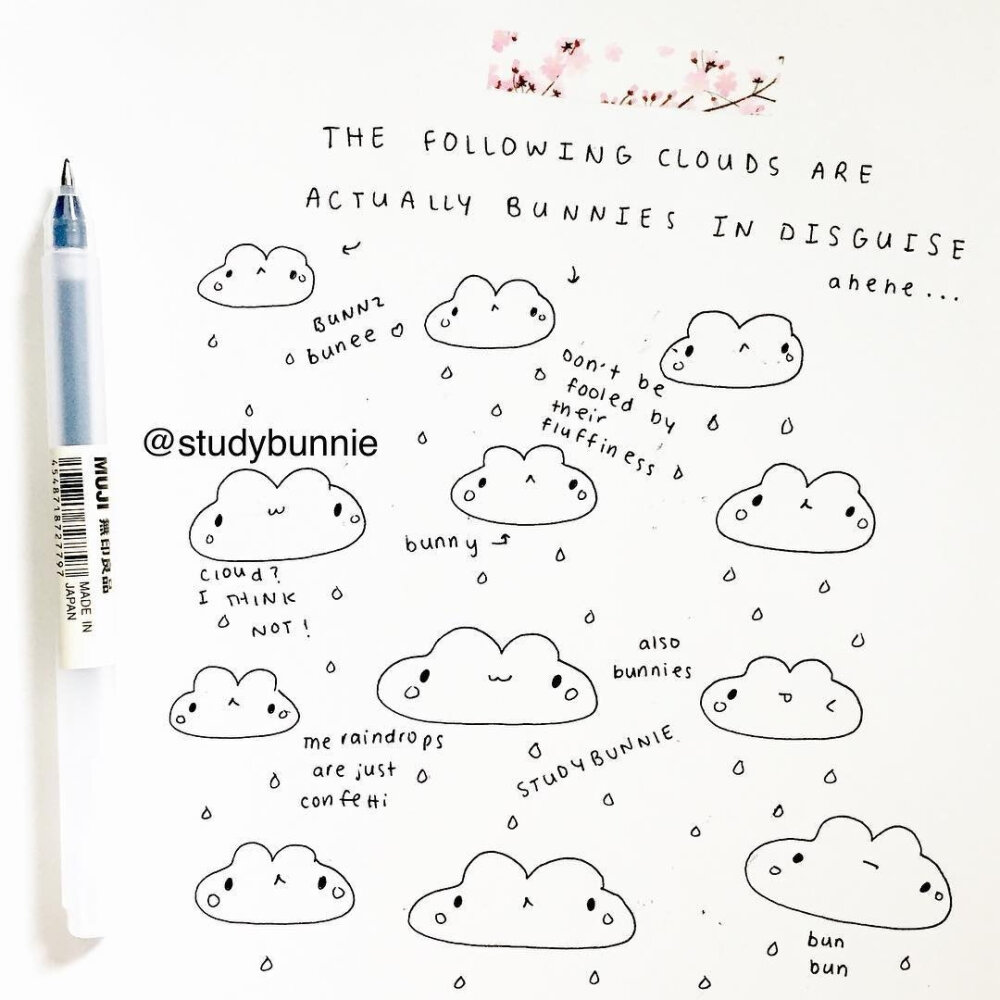 THE FOLLOWING CLOUDS ARE
ACTUALLY BUNNIES IN DISGUISE
ahehe...
BUNNZ
bunee
Don't be
fooled by
their
fluffiness
@studybunnie
bunny
cloud?
I THINK
NOT!
also
bunnies
me raindrops
are just
confetti
STUDYBUNNIE
bun
bun
MUJI 無印良品
4548718727797
MADE IN
JAPAN